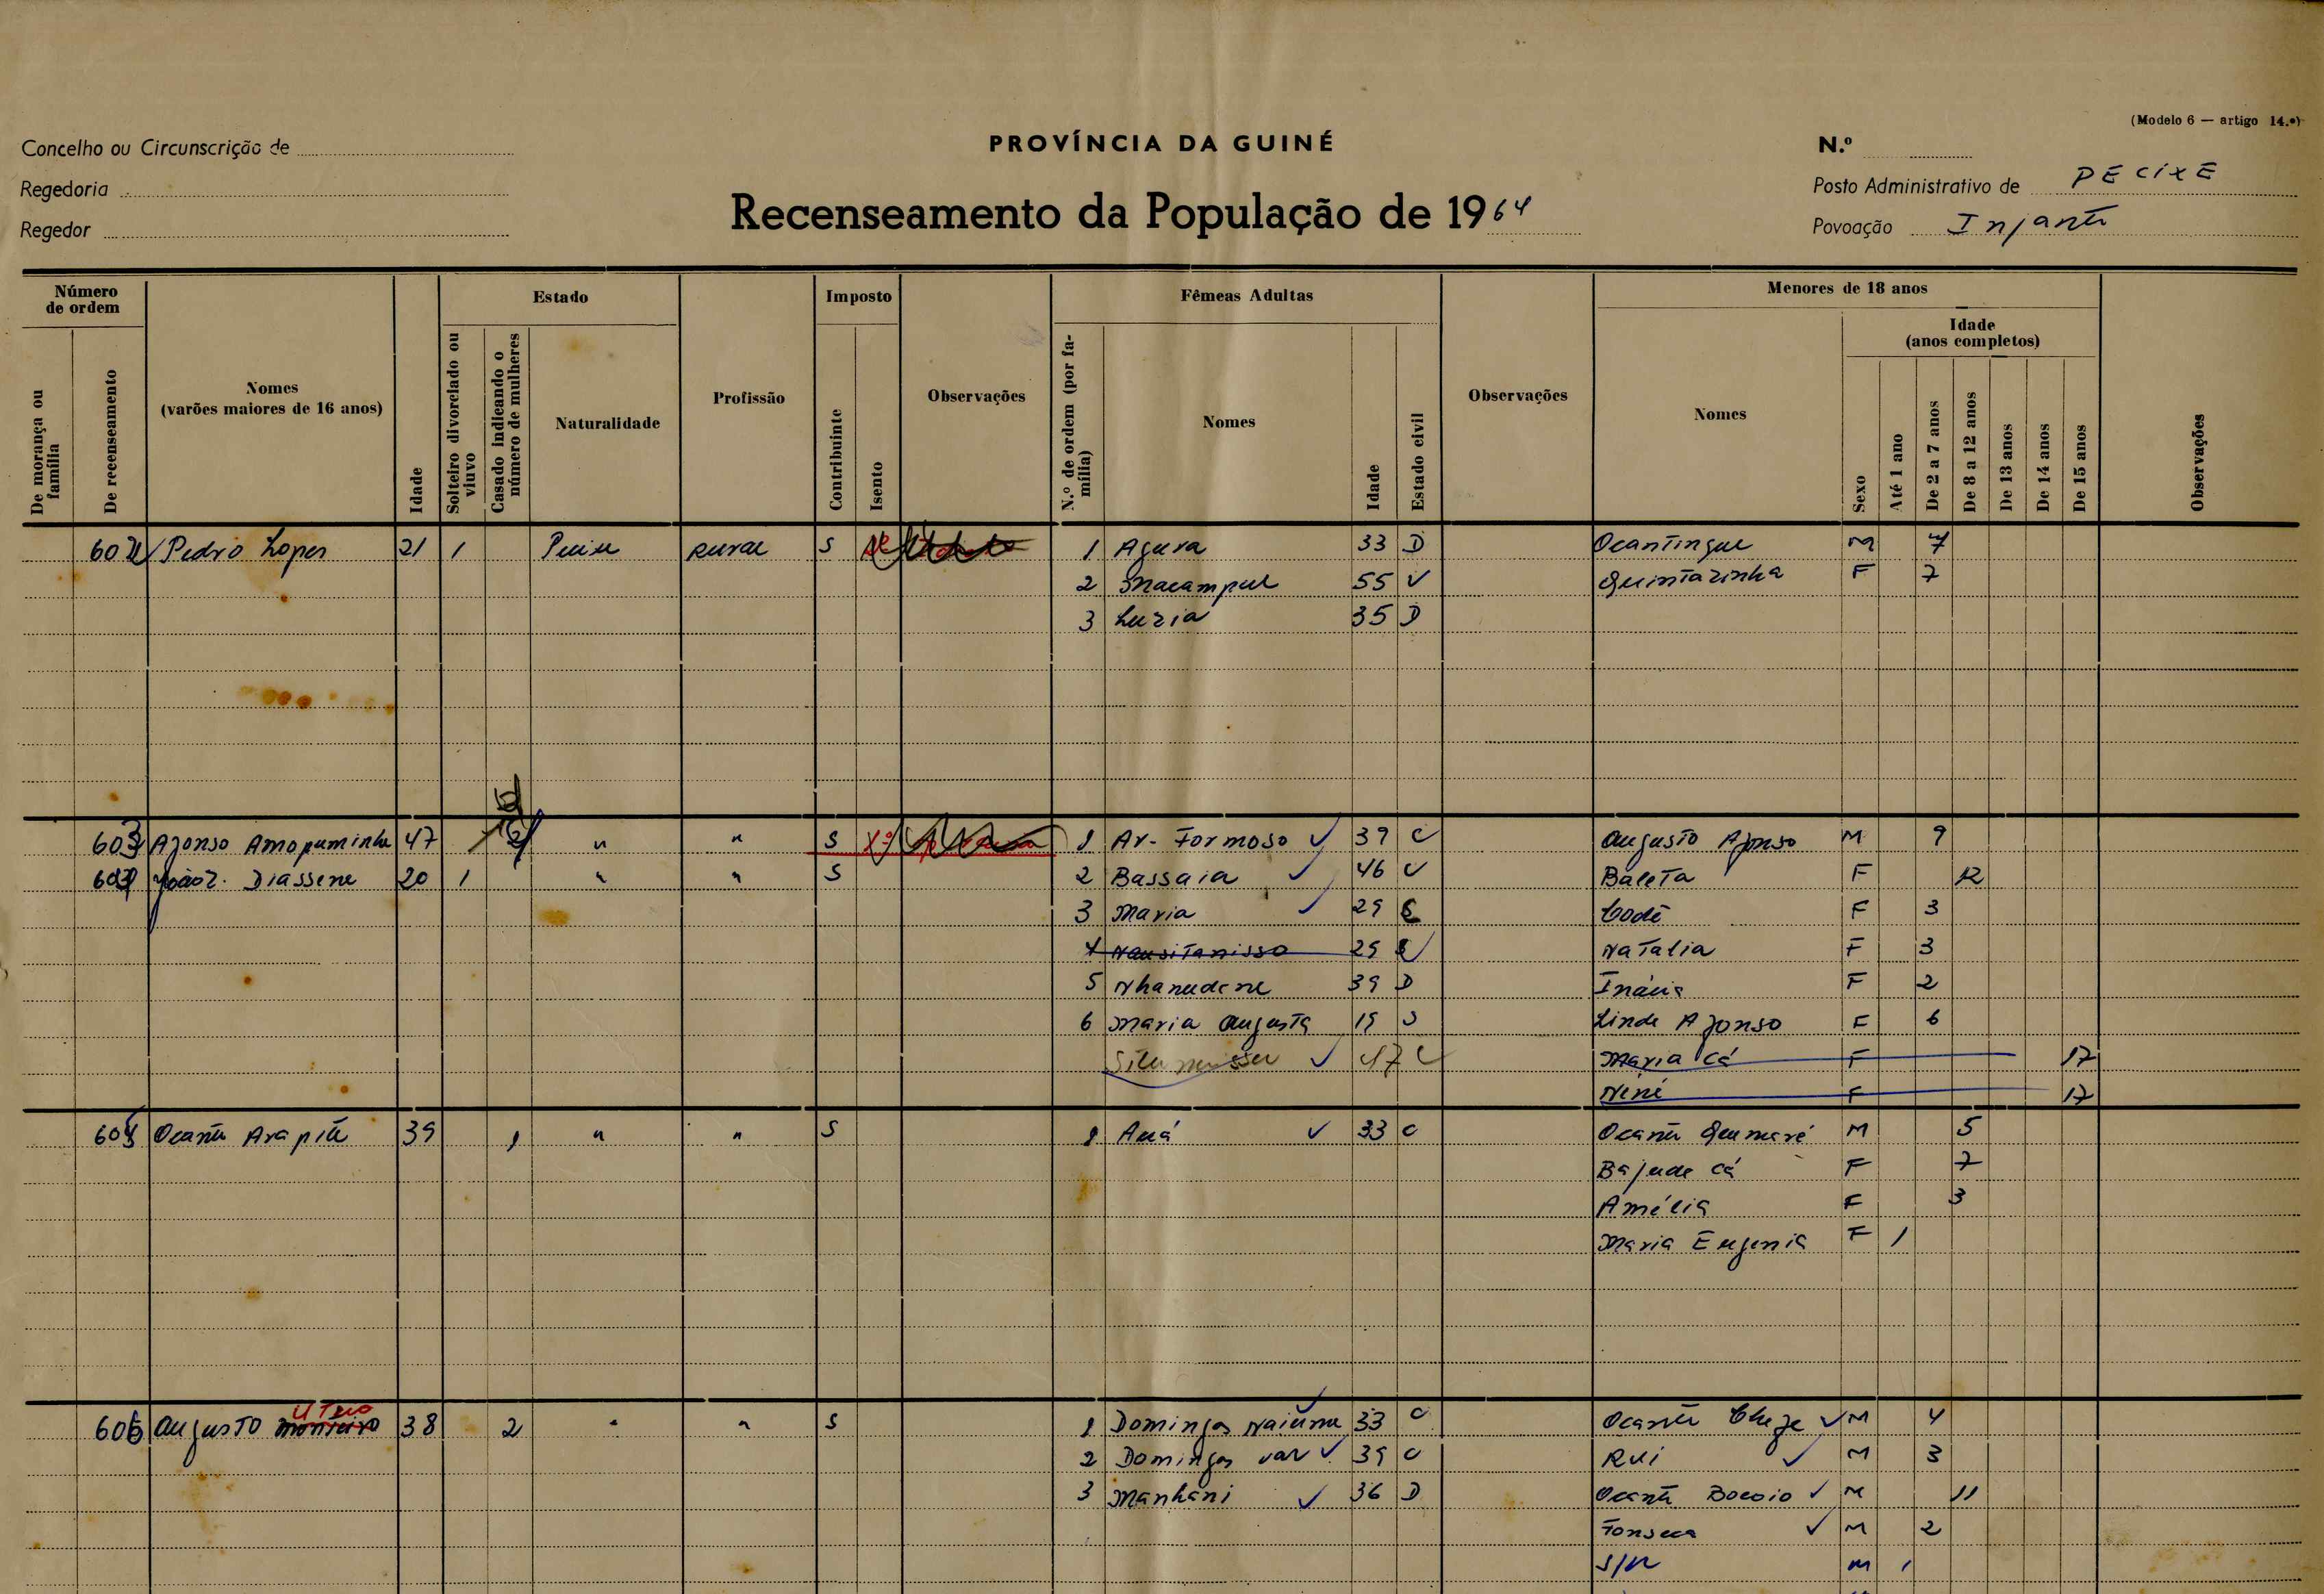 (Modelo 6 — artigo 14.º)
Concelho ou Circunscrição de
PROVÍNCIA DA GUINÉ
N.º
Regedoria
Posto Administrativo de PECIXE
Regedor
Recenseamento da População de 1964
Povoação
Número de ordem
Estado
Imposto
Fêmeas Adultas
Menores de 18 anos
De morança ou família
De recenseamento
Nomes (varões maiores de 16 anos)
Idade
Solteiro divorciado ou viuvo
Casado indicando o número de mulheres
Naturalidade
Profissão
Contribuinte
Isento
Observações
N.º de ordem (por família)
Nomes
Idade
Estado civil
Observações
Nomes
Sexo
Idade (anos completos)
Até 1 ano
De 2 a 7 anos
De 8 a 12 anos
De 13 anos
De 14 anos
De 15 anos
Observações
602 Pedro Lopes 21 1 rural S 1 Agura 33 D Ocantingue M 7
2 55 V Quintazinha F 7
3 Luzia 35 D
603 Afonso 47 " " S 1 Av. Formoso 39 C Augusto Afonso M 9
João Z. Diassene 20 1 " " S 2 Bassaia 46 C Baleta F 12
3 Maria 29 C Codê F 3
4 Nausitanisso 29 Natalia F 3
5 39 D Inácia F 2
6 Maria Augusta 19 S Linda Afonso F 6
47 C Maria Cá F 17
Nené F 17
39 1 " " S 1 Auá 33 C M 5
Bajude Cá F 7
Amélia F 3
Maria Eugenia F 1
606 Augusto Monteiro 38 2 " " S 1 Domingas 33 C M 4
2 Domingas 39 C Rui M 3
3 Manhani 36 D M 11
Fonseca M 2
S/N M 1